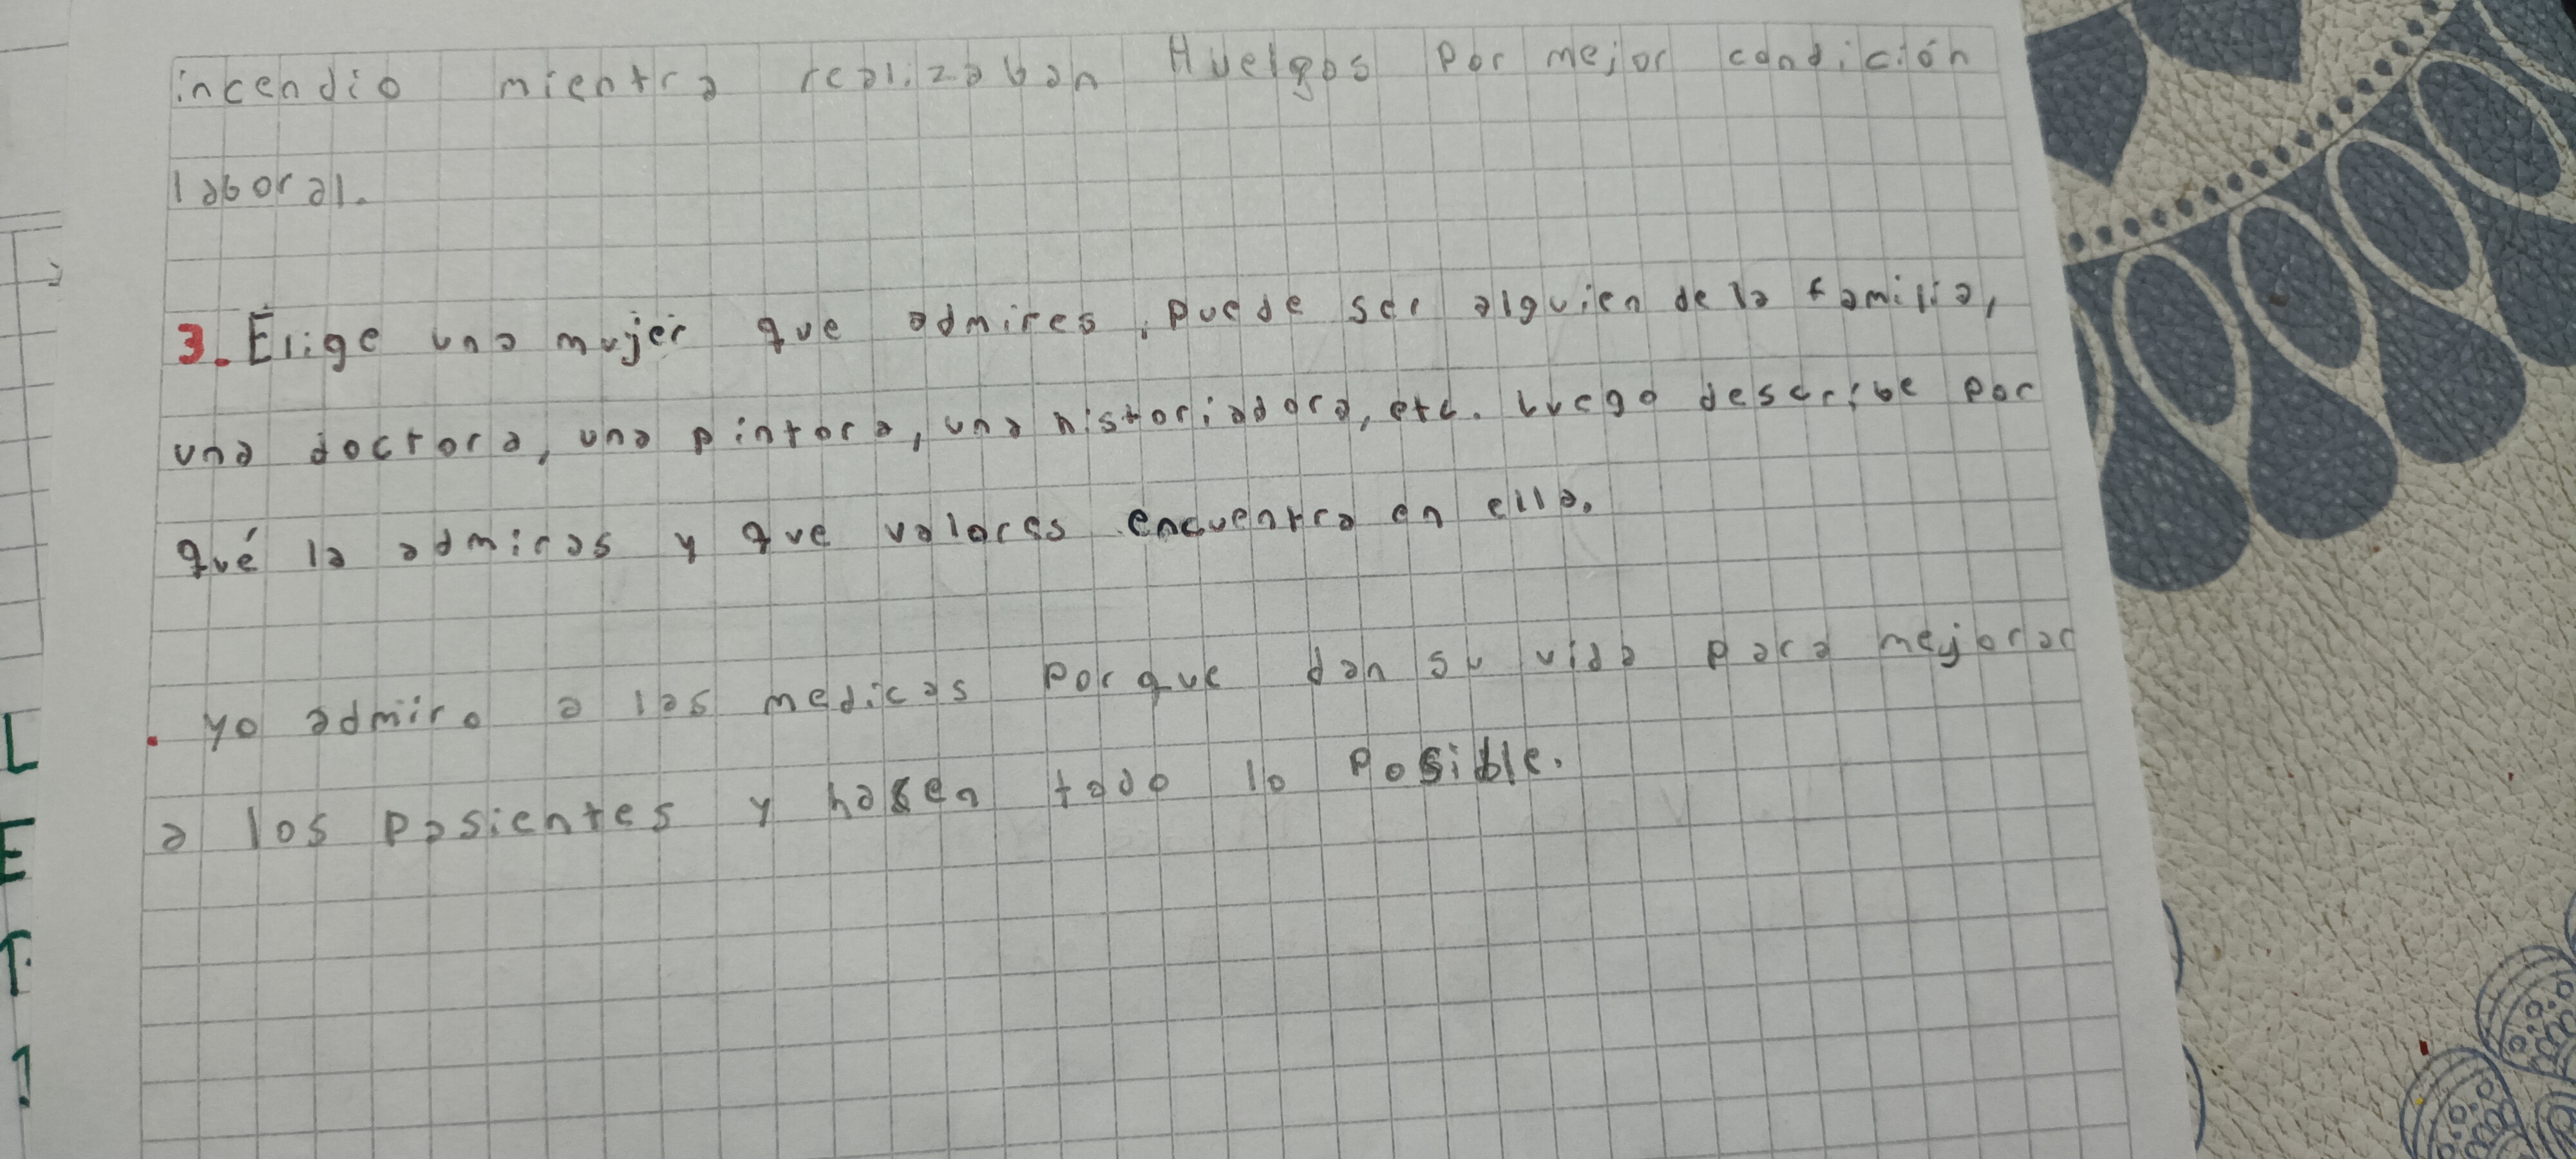 incendio mientra realizaban Huelgas por mejor condición
laboral.
3. Elige una mujer que admires, puede ser alguien de la familia,
una doctora, una pintora, una historiadora, etc. Luego describe por
qué la admiras y que valores encuentra en ella.
. yo admiro a las medicas porque dan su vida para mejorar
a los pasientes y hasen todo lo posible.
L
E
T
1